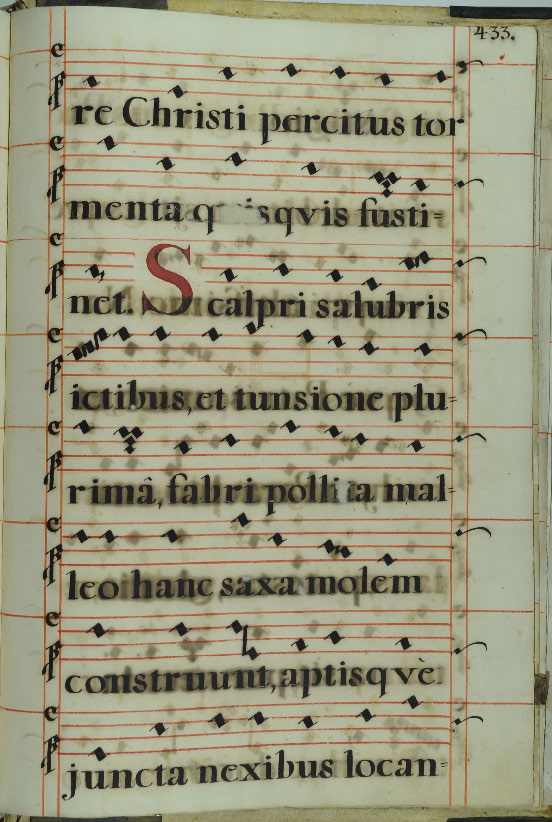 433.
re Christi percitus tor
menta quisqvis fusti=
net. Scalpri salubris
ictibus, et tunsione plu=
rimâ, fabri pollita mal=
leo hanc saxa molem
construunt, aptisqvè
juncta nexibus locan=